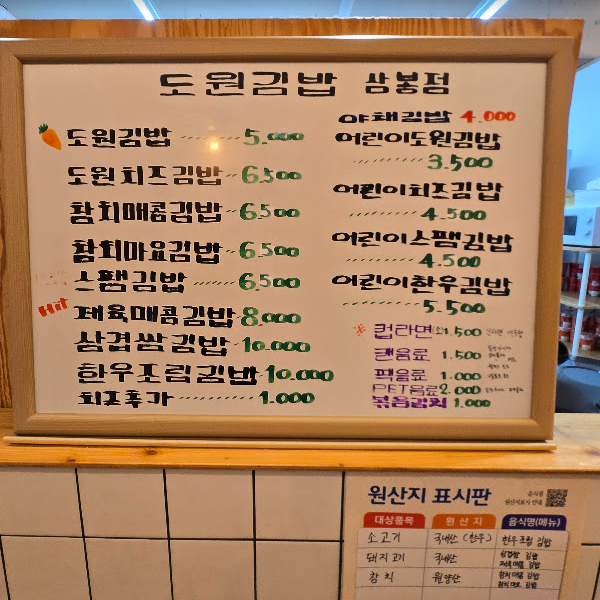 도원김밥 삼봉점
도원김밥 5.000
도원치즈김밥 6.500
참치매콤김밥 6.500
참치마요김밥 6.500
스팸김밥 6.500
Hit 제육매콤김밥 8.000
삼겹쌈김밥 10.000
한우조림김밥 10.000
치즈추가 1.000
야채김밥 4.000
어린이도원김밥
3.500
어린이치즈김밥
4.500
어린이스팸김밥
4.500
어린이한우김밥
5.500
컵라면 1,500
캔음료 1.500
팩음료 1.000
PET음료 2.000
볶음김치 1.000
원산지 표시판
대상품목 원산지 음식명(메뉴)
소고기 국내산 (한우) 한우조림 김밥
돼지고기 국내산 삼겹쌈 김밥
제육매콤 김밥
참치 원양산 참치매콤 김밥
참치마요 김밥